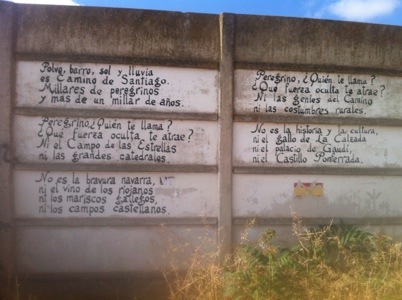 Polvo, barro, sol y lluvia
es Camino de Santiago.
Millares de peregrinos
y más de un millar de años.
Peregrino, ¿Quién te llama?
¿Que fuerza oculta te atrae?
Ni el Campo de las Estrellas
ni las grandes catedrales.
No es la bravura navarra,
ni el vino de los riojanos
ni los mariscos gallegos,
ni los campos castellanos.
Peregrino, ¿Quién te llama?
¿Que fuerza oculta te atrae?
Ni las gentes del Camino
ni las costumbres rurales.
No es la historia y la cultura,
ni el gallo de La Calzada
ni el palacio de Gaudí,
ni el Castillo Ponferrada.